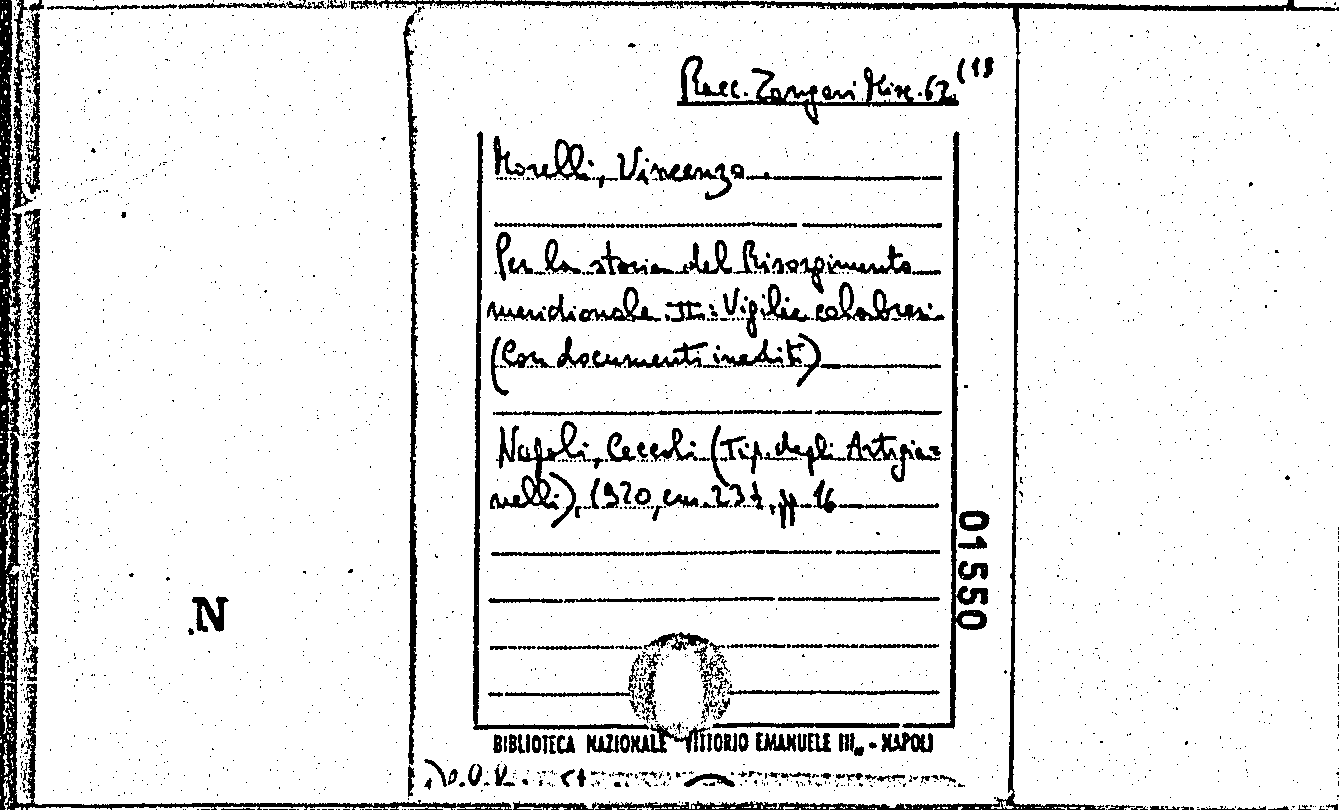 Racc. Zangari Misc. 62 (19
Morelli, Vincenzo.
Per la storia del Risorgimento
meridionale. II: Vigilie calabresi
(Con documenti inediti)
Napoli, Ceccoli (Tip. degli Artigia=
nelli), 1920, cm. 23½, pp 16
01550
.N
BIBLIOTECA NAZIONALE VITTORIO EMANUELE III„ - NAPOLI